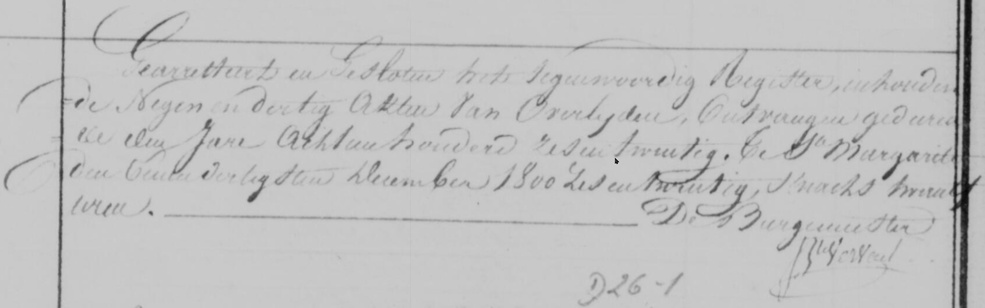 Gearretteert en Gesloten het tegenwoordig Register, inhouden
=de Negen en dertig Akten Van Overlyden, Ontvangen geduren
=de den Jare Achtien honderd zes en twintig. te Sta Margarite
den eenen dertigsten December 1800 Zes en twintig, s'nachts twaalf
uren. De Burgemeester
D 26-1